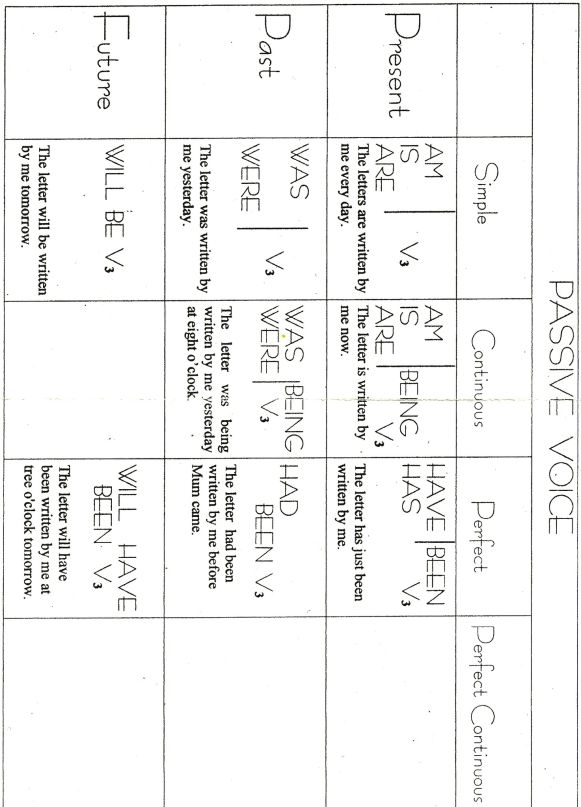 PASSIVE VOICE
Simple
Continuous
Perfect
Perfect Continuous
Present
AM
IS
ARE
V3
The letters are written by
me every day.
AM
IS
ARE
BEING
V3
The letter is written by
me now.
HAVE
HAS
BEEN
V3
The letter has just been
written by me.
Past
WAS
WERE
V3
The letter was written by
me yesterday.
WAS
WERE
BEING
V3
The letter was being
written by me yesterday
at eight o'clock.
HAD
BEEN V3
The letter had been
written by me before
Mum came.
Future
WILL BE V3
The letter will be written
by me tomorrow.
WILL HAVE
BEEN V3
The letter will have
been written by me at
tree o'clock tomorrow.